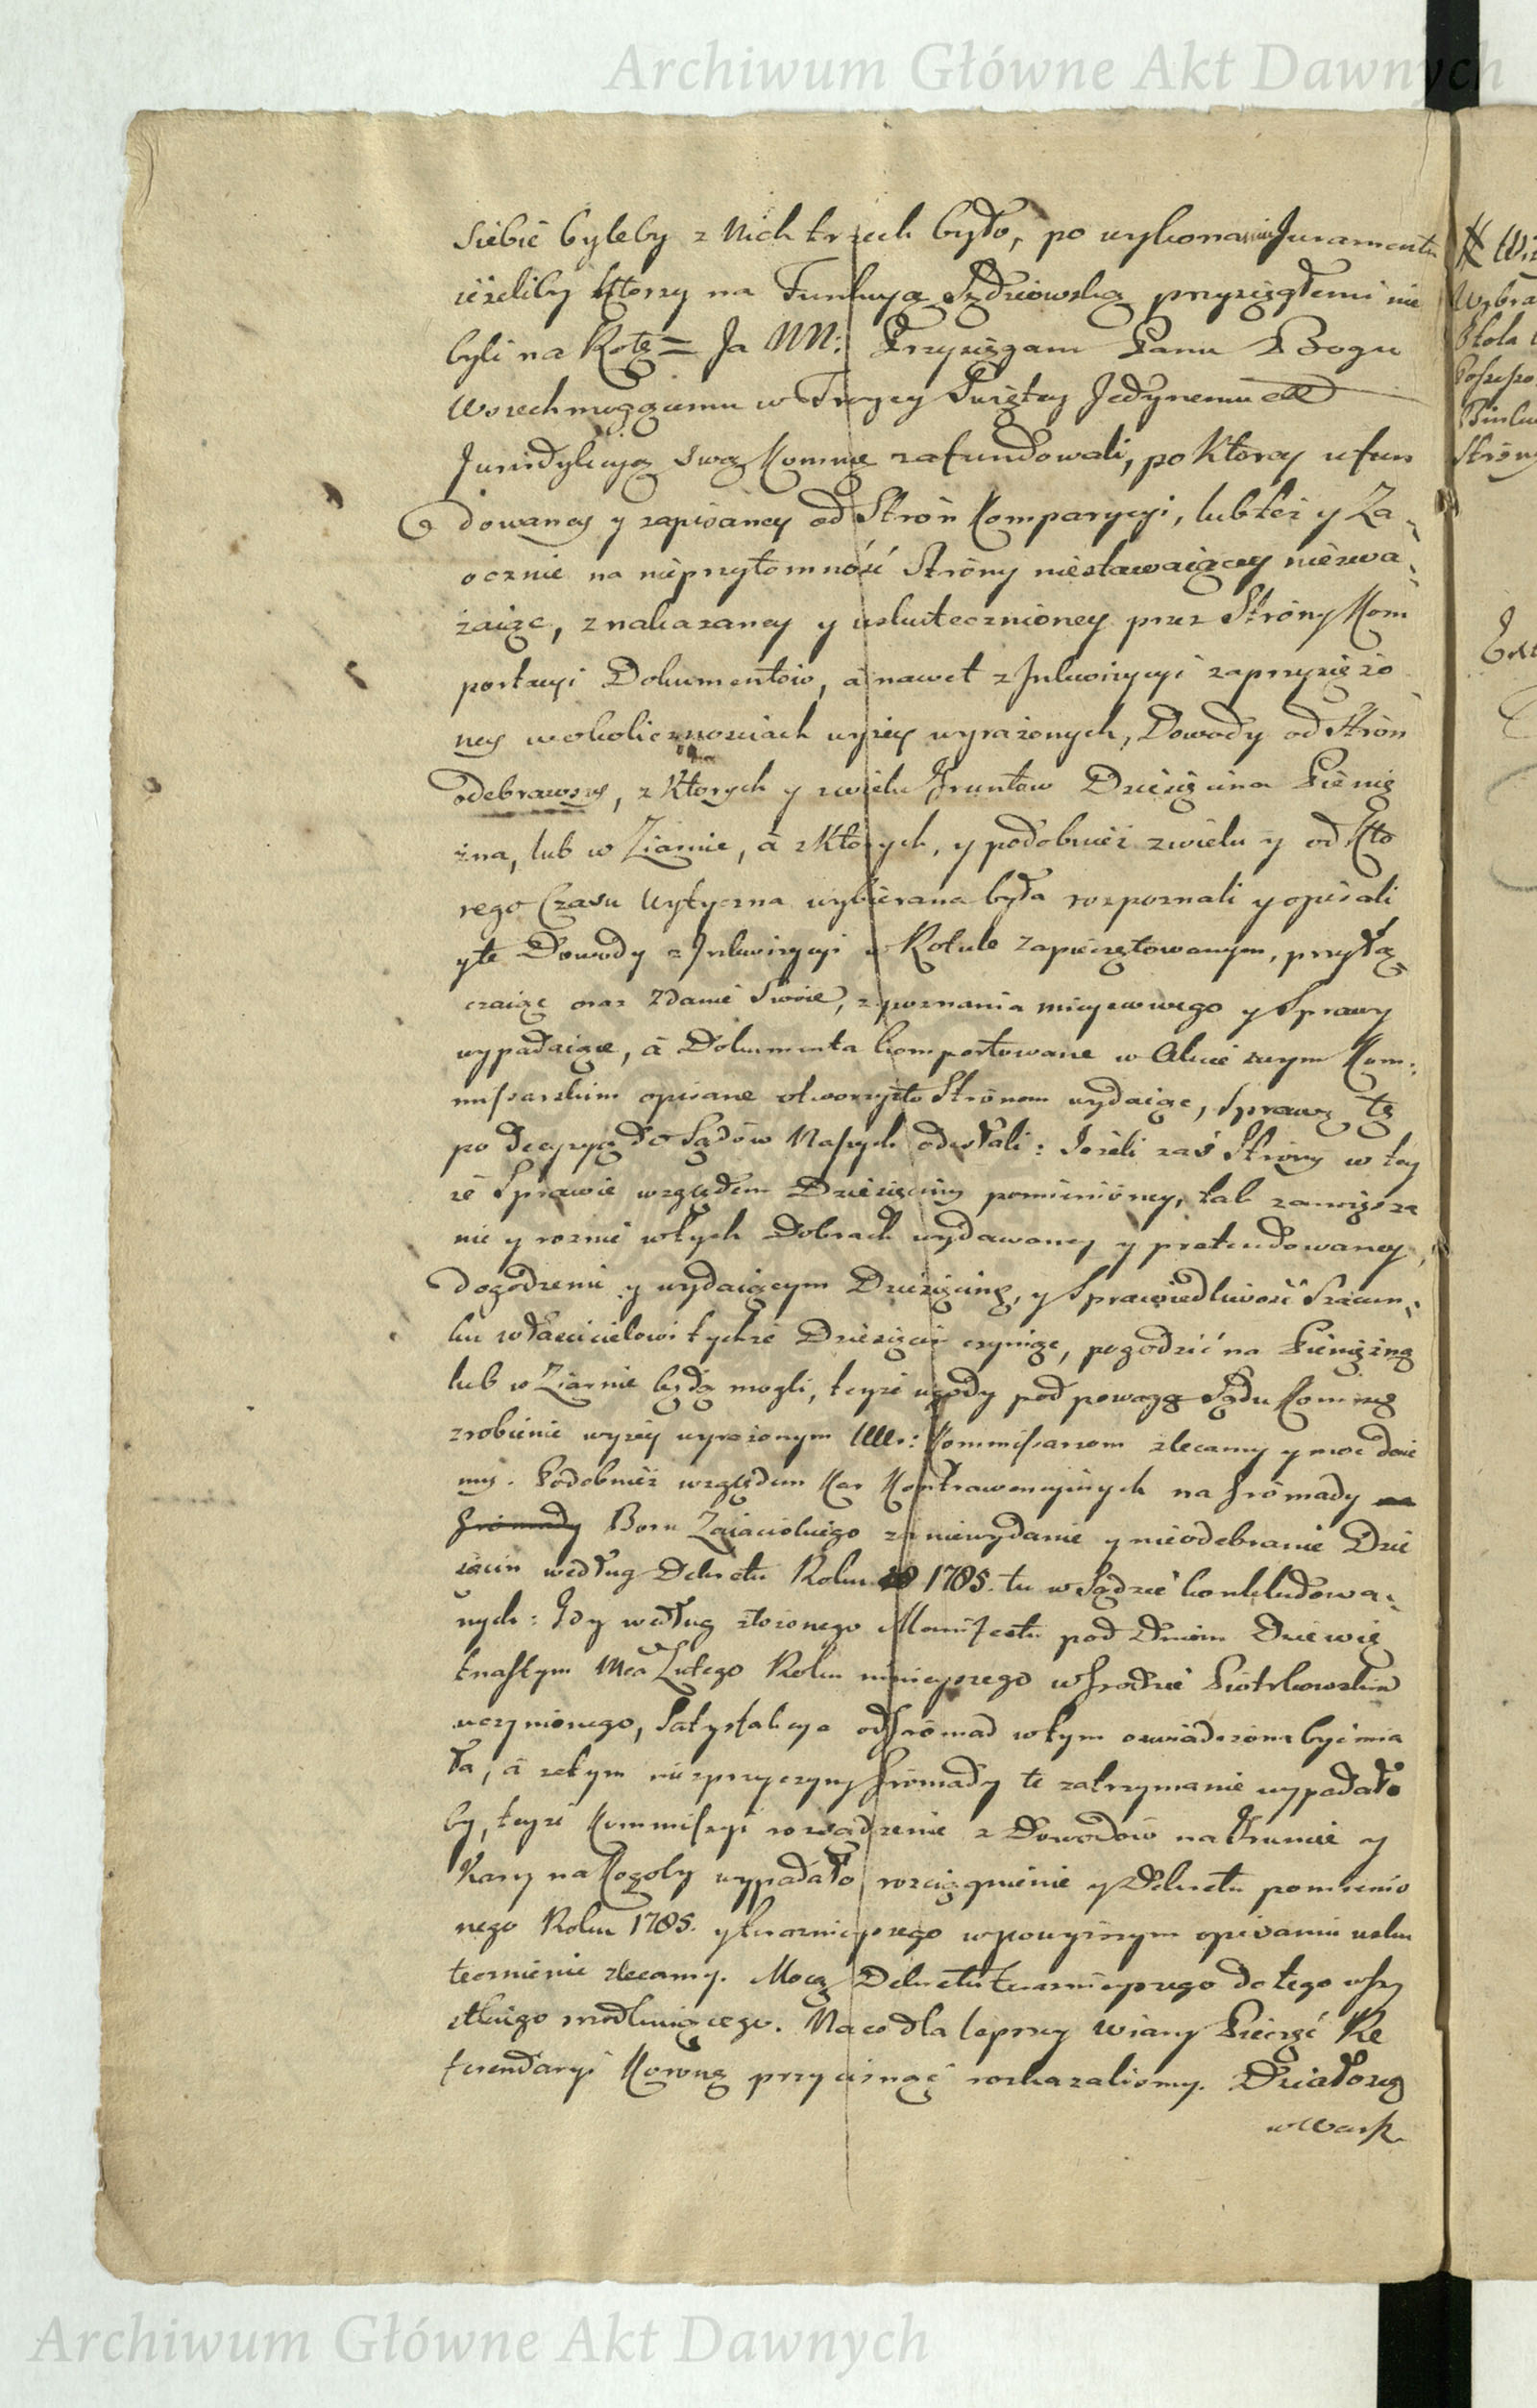 Archiwum Główne Akt Dawnych
siebie byleby z Nich trzech było, po wykonaniu Juramentu
ieżeliby ktorzy na Funkcyą Sędziowską przysięgłemi nie
byli na Rotę = Ja NN: Przysięgam Panu Bogu
Wszechmogącemu w Troycy Swiętey Jedynemu etc
Jurisdykcyą swą Kommę zafundowali, po ktorey ufun
dowaney y zapisaney od Strón Komparycyi, lub też y Za-
ocznie na nieprzytomność Stróny niestawaiącey niezwa-
żaiąc, z nakazaney y uskutecznioney przez Stróny Kom
portacyi Dokumentow, a nawet z Inkwizycyi zaprzysiężo
ney w okolicznosciach wyżey wyrażonych, Dowody od Strón
odebrawszy, z Ktorych y zwielu Gruntow Dziesięcina Pienię
żna, lub w Ziarnie, a z Ktorych, y podobnież zwielu y od Kto
rego Czasu Wytyczna wybierana była rozpoznali y opisali
y te Dowody z Inkwizycyi w Rotule zapieczętowanym, przyłą
czaiąc oraz Zdanie Swoie, z poznania mieyscowego y Sprawy
wypadaiące, a Dokumenta komportowane w Akcie swym Kom-
missarskim opisane otworzysto Strónom wydaiąc, Sprawę tę
po decyzyą do Sądów Naszych odesłali: Jeżeli zaś Strony w tey
że Sprawie względem Dziesięciny pomienióney, tak zawiesza
nie y roznie w tych Dobrach wydawaney y pretendowaney,
dogodzenie y wydaiącym Dziesięcinę, y Sprawiedliwość Szacun-
ku właścicielowi tychże Dziesięcin czyniąc, pogodzić na Pieniężną
lub w Ziarnie będą mogli, teyże ugody pod powagą Sądu Kommę
zrobienie wyżey wyrażonym WW: Kommissarzom zlecamy y moc daie
my. Podobnież względem Kar Kontrawencyinych na Gromady
Gromady Boru Zaiacielniego za niewydanie y nieodebranie Dzie
sięcin według Dekretu Roku 1785. tu w Sądzie konkludowa-
nych: Gdy według złożonego Manifestu pod Dniem Dziewię
tnastym Mca Lutego Roku ninieyszego w Grodzie Piotrkowskim
uczynionego, Satysfakcya od Gromad w tym oswiadczona być mia
ła, a zatym nie z przyczyny Gromady te zatrzymanie wypadało
by, teyże Kommissyi rozsądzenie z Dowodów na Gruncie y
Kary na Kogoby wypadało, rozciągnienie y Dekretu pomienio
nego Roku 1785. y teraznieyszego w powyższym opisaniu usku
tecznienie zlecamy. Mocą Dekretu teraznieyszego do tego wszy
stkiego modluiącego. Na co dla lepszey Wiary Pieczęć Re
ferendaryi Koronę przycisnąć rozkazalismy. Działo się
w Warsz
Archiwum Główne Akt Dawnych